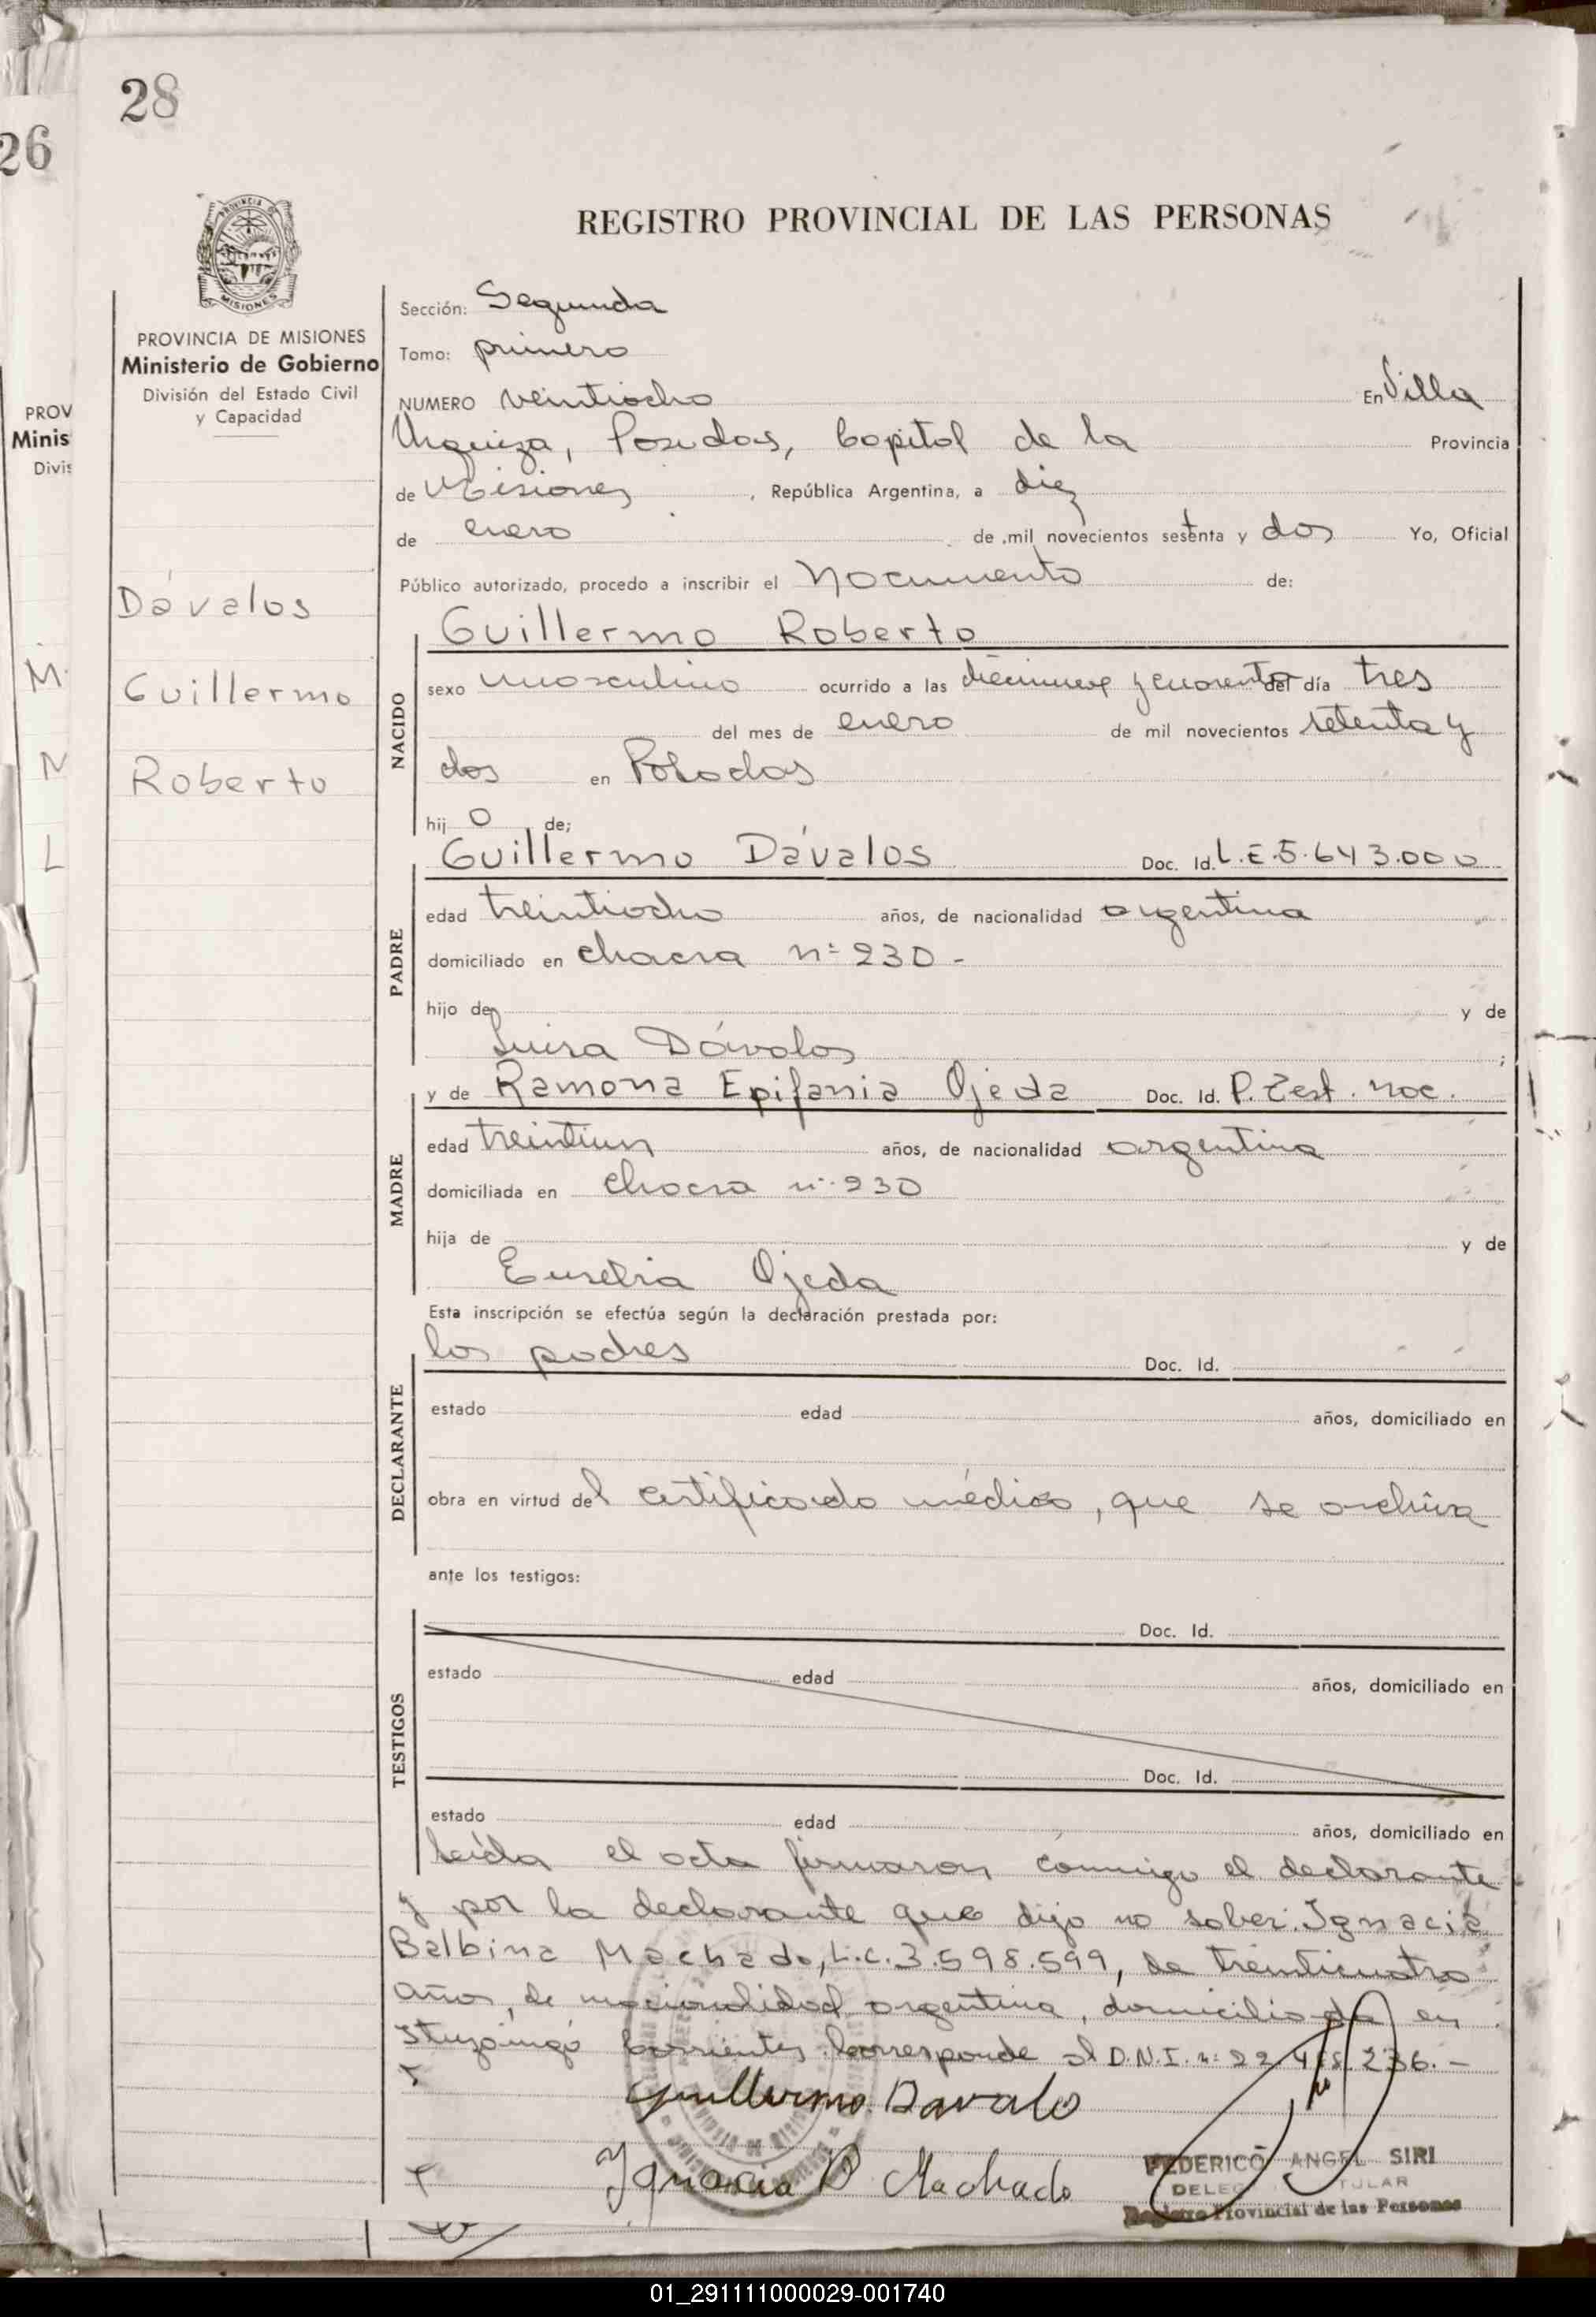 28
26
REGISTRO PROVINCIAL DE LAS PERSONAS
PROVINCIA DE
MISIONES
PROVINCIA DE MISIONES
Ministerio de Gobierno
División del Estado Civil
y Capacidad
PROV
Minis
Divis
M.
N
L
Dávalos
Guillermo
Roberto
Sección: Segunda
Tomo: primero
NUMERO veintiocho En Villa
Urquiza, Posadas, Capital de la Provincia
de Misiones, República Argentina, a diez
de enero de mil novecientos setenta y dos Yo, Oficial
Público autorizado, procedo a inscribir el nacimiento de:
NACIDO
Guillermo Roberto
sexo masculino ocurrido a las diecinueve y cuarenta del día tres
del mes de enero de mil novecientos setenta y
dos en Posadas
hijo de;
PADRE
Guillermo Dávalos Doc. Id. L.E.5.643.000
edad treintiocho años, de nacionalidad argentina
domiciliado en chacra nº 230-
hijo de y de
Luisa Dávalos;
MADRE
y de Ramona Epifania Ojeda Doc. Id. P. Test. nac.
edad treintiun años, de nacionalidad argentina
domiciliada en chacra nº 230
hija de y de
Ojeda
Esta inscripción se efectúa según la declaración prestada por:
DECLARANTE
los padres Doc. Id.
estado edad años, domiciliado en
obra en virtud del certificado médico, que se archiva
ante los testigos:
TESTIGOS
Doc. Id.
estado edad años, domiciliado en
Doc. Id.
estado edad años, domiciliado en
Leida el acta firmaron conmigo el declarante
y por la declarante que dijo no saber: Ignacia
Balbina Machado, L.C.3.598.599, de treinticuatro
años, de nacionalidad argentina, domiciliada en
Ituzaingó Corrientes. Corresponde al D.N.I. nº 22.4 236.-
Guillermo Davalo
Ignacia B Machado
FEDERICO ANGEL SIRI
DELEG TULAR
Registro Provincial de las Personas
01_291111000029-001740